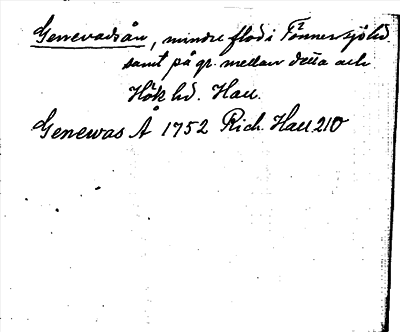 Genevadsån, mindre flod i Tönnersjö hd
samt på gr. mellan detta och
Hök hd. Hall.
Genewas Å 1752 Rich. Hall 210